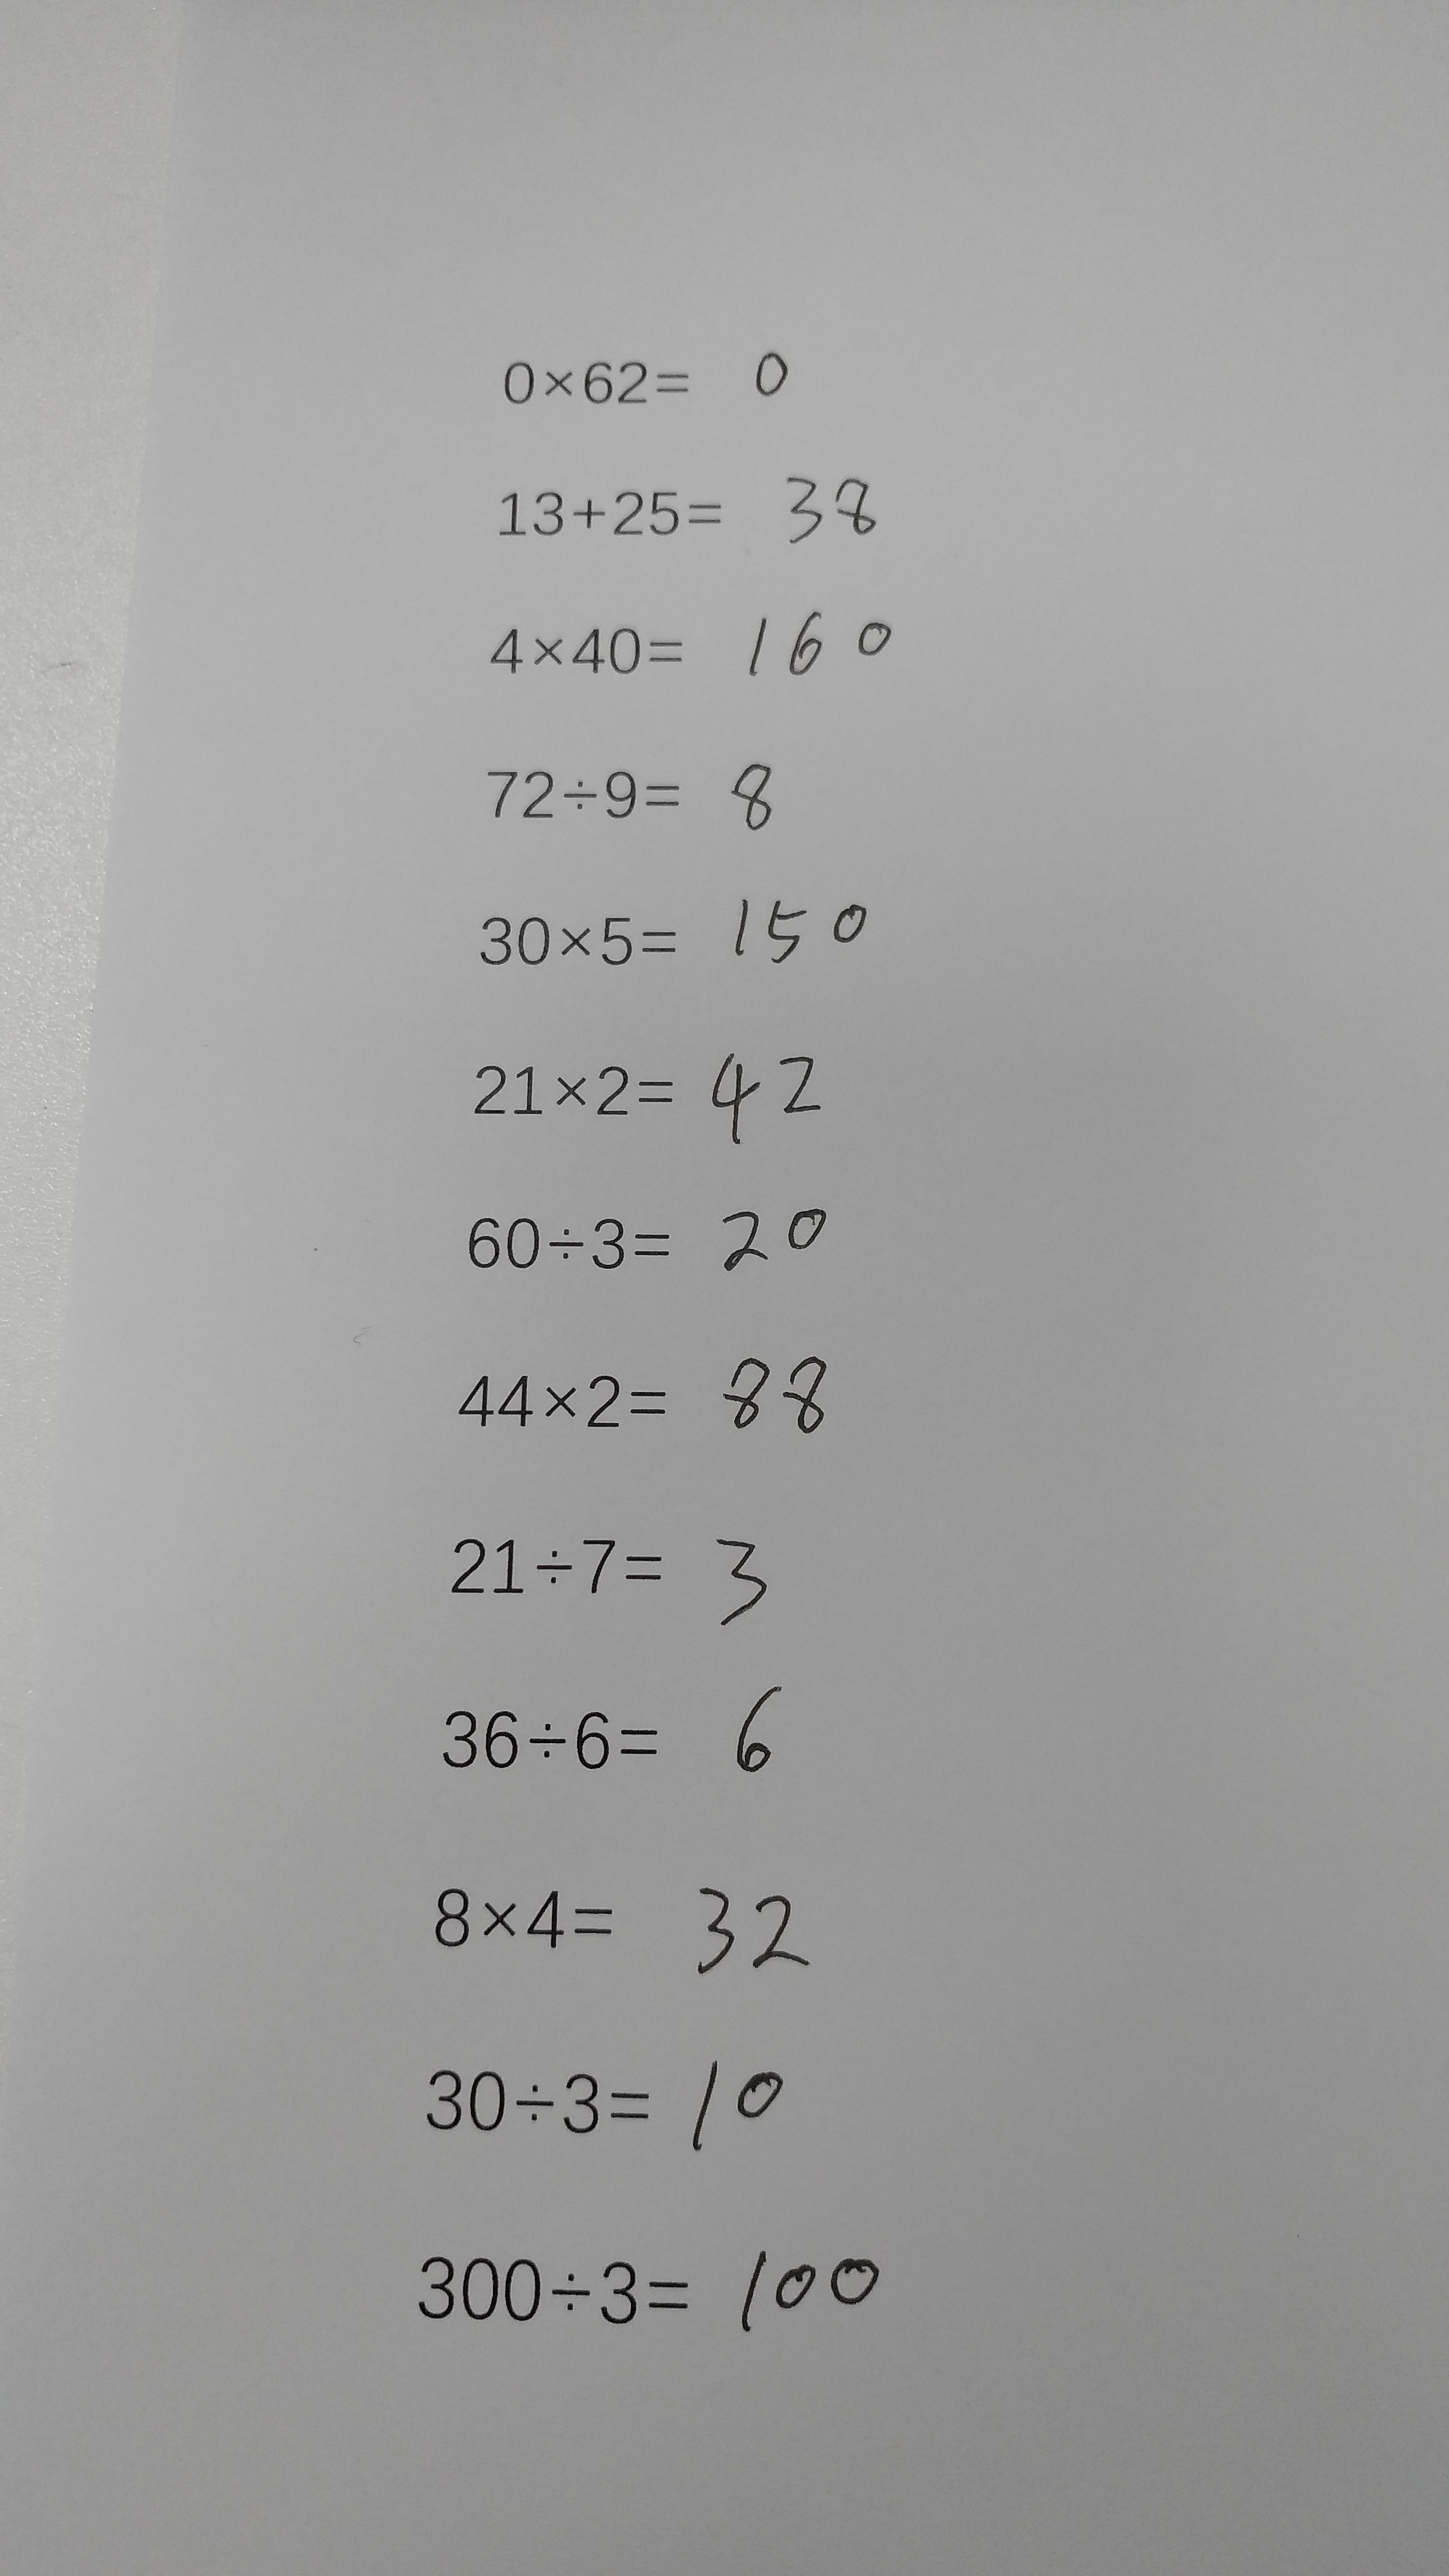 0×62= 0
13+25= 38
4×40= 160
72÷9= 8
30×5= 150
21×2= 42
60÷3= 20
44×2= 88
21÷7= 3
36÷6= 6
8×4= 32
30÷3= 10
300÷3= 100